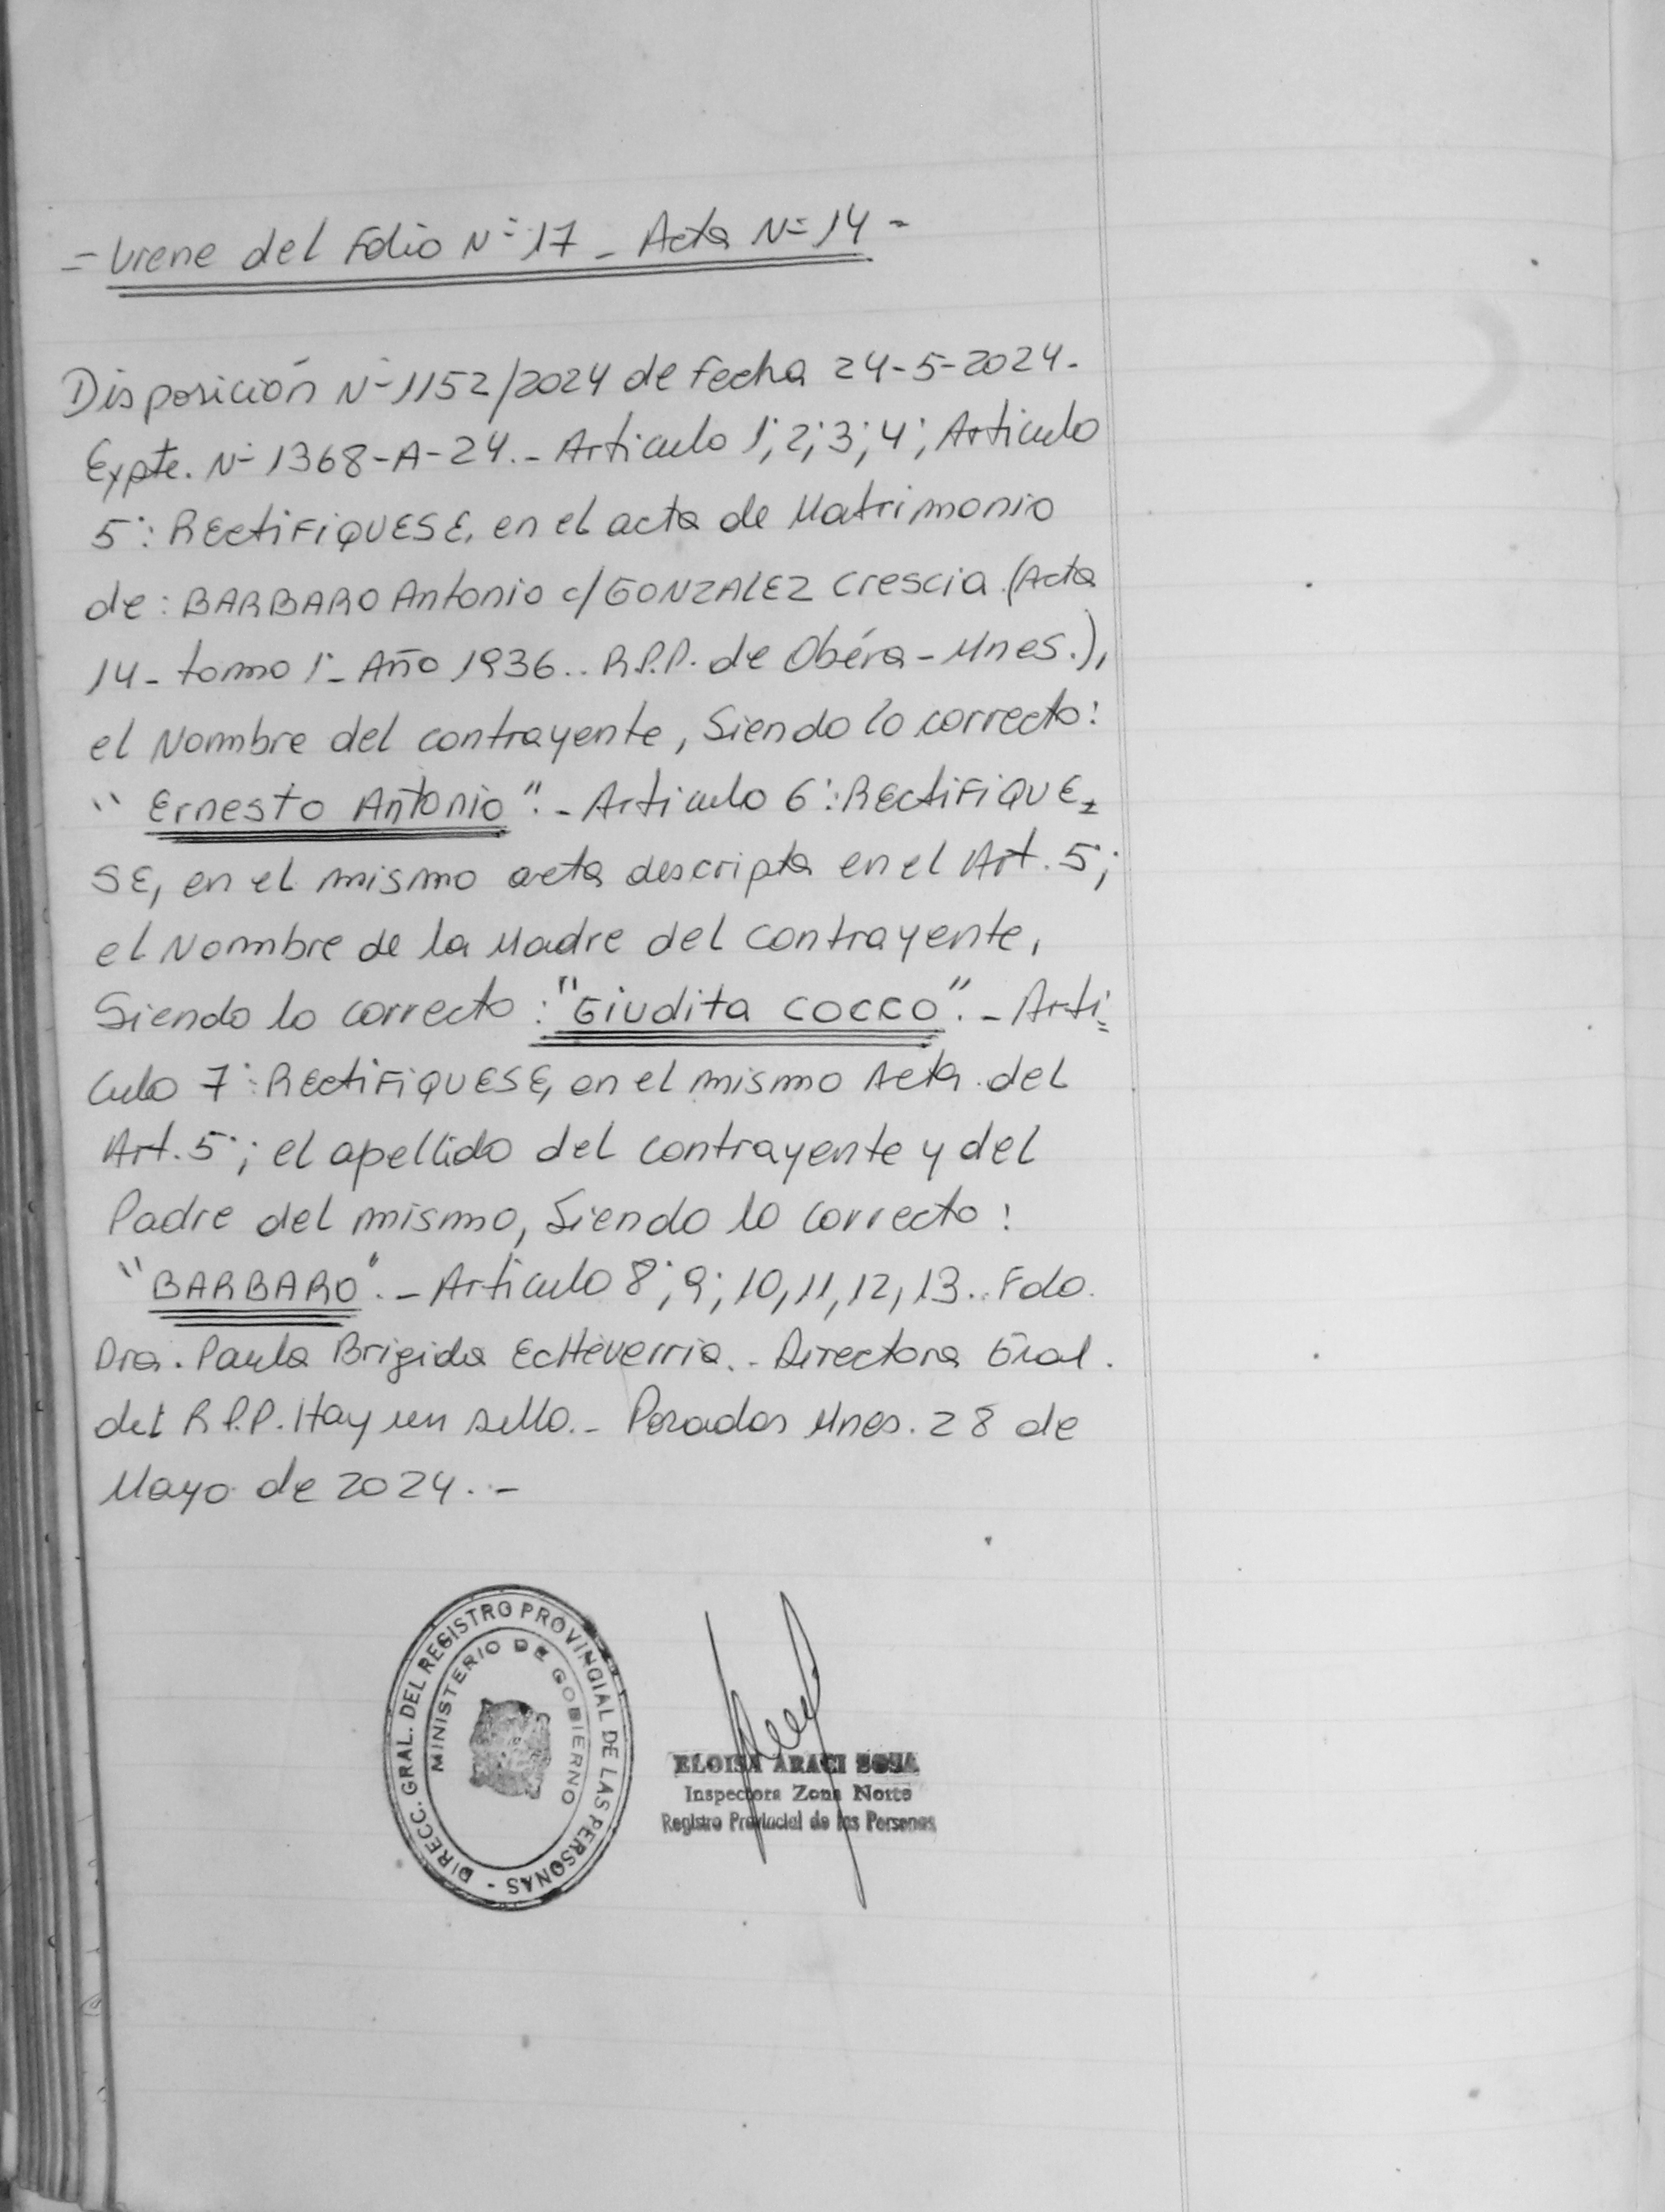 = Viene del Folio Nº 17 - Acta Nº 14 =
Disposición Nº 1152/2024 de Fecha 24-5-2024.
Expte. Nº 1368-A-24.- Articulo 1º; 2º; 3º; 4º; Articulo
5º: RECtiFiQUESE, en el acta de Matrimonio
de: BARBARO Antonio c/ GONZALEZ Crescia (Acta
14 - tomo 1º - Año 1936.. R.P.P. de Obéra - Mnes.),
el Nombre del contrayente, Siendo lo correcto:
"Ernesto Antonio".- Articulo 6º: RECtiFiQUE=
SE, en el mismo acta descripta en el Art. 5º;
el Nombre de la Madre del contrayente,
Siendo lo correcto: "Giudita COCCO".- Arti=
culo 7º: RECtiFiQUESE, en el mismo Acta del
Art. 5º; el apellido del contrayente y del
Padre del mismo, Siendo lo correcto:
"BARBARO".- Articulo 8º; 9º; 10, 11, 12, 13.. Fdo.
Dra. Paula Brigida EcHeverria.- Directora Gral.
del R.P.P. Hay un sello.- Posadas Mnes. 28 de
Mayo de 2024..-
DIRECC. GRAL. DEL REGISTRO PROVINCIAL DE LAS PERSONAS -
MINISTERIO DE GOBIERNO
ELOISA ARACI
Inspectora Zona Norte
Registro Provincial de las Personas